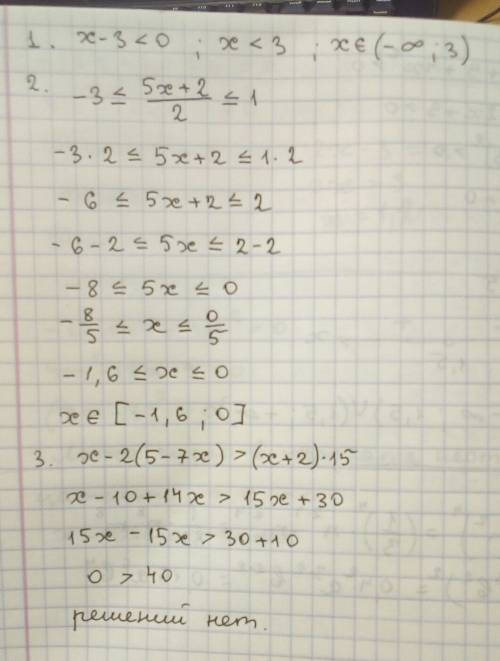 1. x-3<0 ; x<3 ; x∈(-∞; 3)
2. -3 ≤ (5x+2)/2 ≤ 1
-3·2 ≤ 5x+2 ≤ 1·2
-6 ≤ 5x+2 ≤ 2
-6-2 ≤ 5x ≤ 2-2
-8 ≤ 5x ≤ 0
-8/5 ≤ x ≤ 0/5
-1,6 ≤ x ≤ 0
x∈[-1,6 ; 0]
3. x-2(5-7x) > (x+2)·15
x-10+14x > 15x+30
15x-15x > 30+10
0 > 40
решений нет.